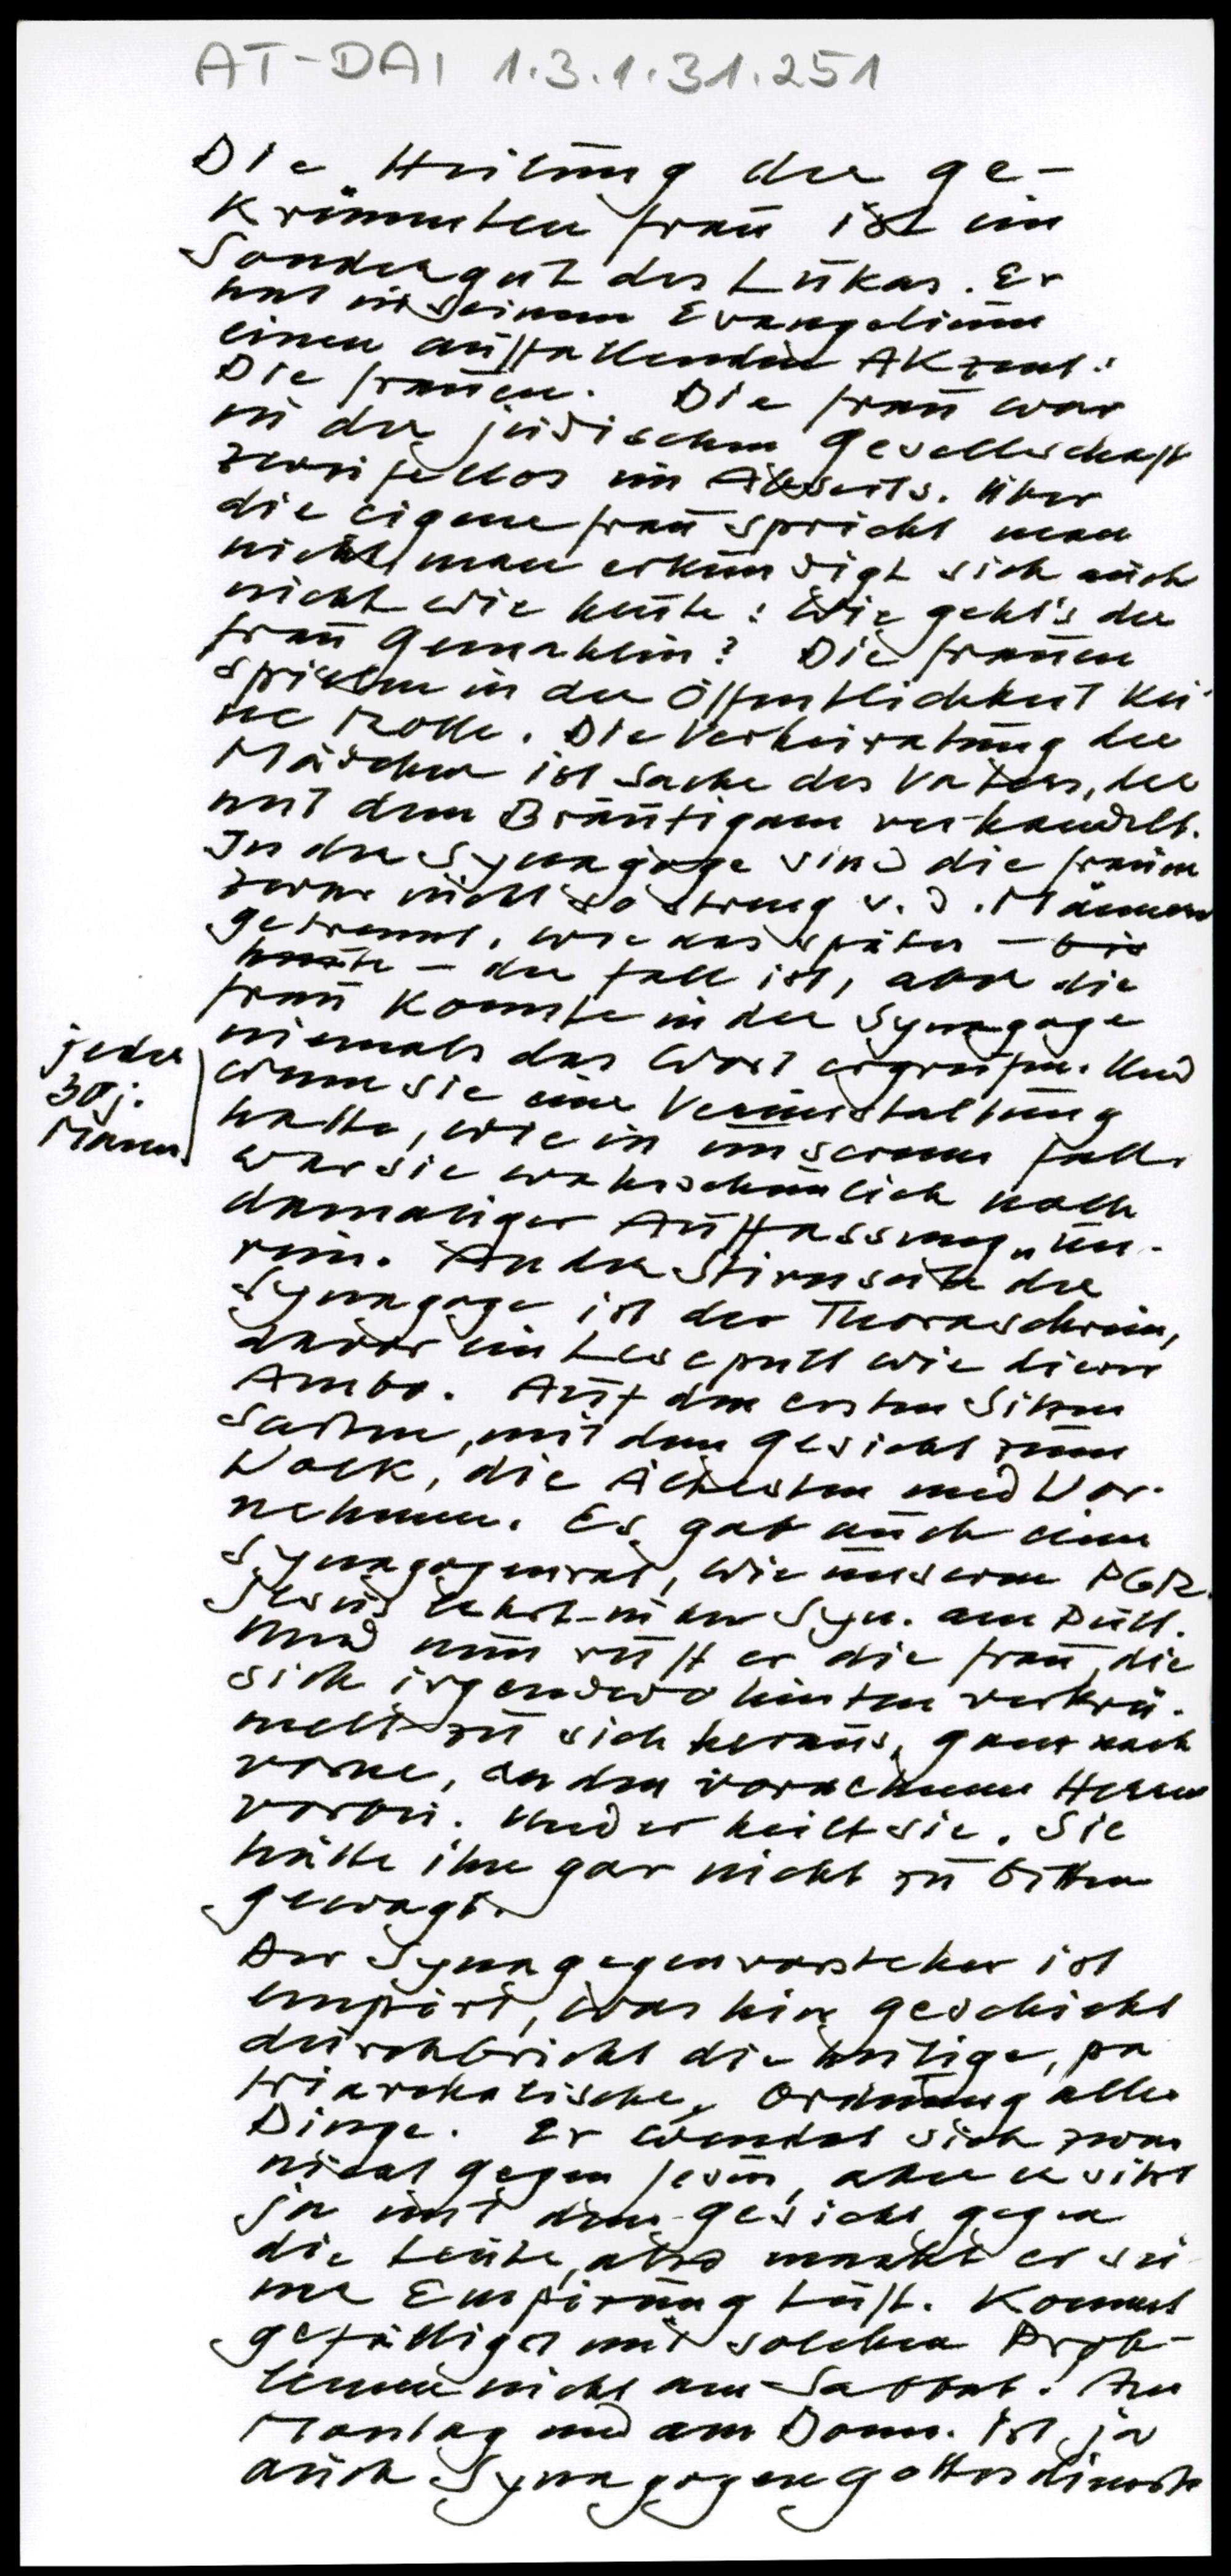 AT-DAI 1.3.1.31.251
Die Heilung der ge-
krümmten Frau ist ein
Sondergut des Lukas. Er
hat in seinem Evangelium
einen auffallenden Akzent:
Die Frauen. Die Frau war
in der jüdischen Gesellschaft
zweifellos im Abseits. Über
die eigene Frau spricht man
nicht, man erkundigt sich auch
nicht wie heute: Wie geht's der
Frau Gemahlin? Die Frauen
spielen in der Öffentlichkeit kei-
ne Rolle. Die Verheiratung der
Mädchen ist Sache des Vaters, der
mit dem Bräutigam verhandelt.
In der Synagoge sind die Frauen
zwar nicht so streng v. d. Männern
getrennt, wie das später – bis
heute – der Fall ist, aber die
Frau konnte in der Synagoge
niemals das Wort ergreifen. Und
jeder
30j.
Mann
wenn sie eine Verunstaltung
hatte, wie in unserem Fall,
war sie wahrscheinlich nach
damaliger Auffassung „un-
rein. An der Stirnseite der
Synagoge ist der Thoraschrein,
davor ein Lesepult wie dieser
Ambo. Auf den ersten Sitzen
saßen, mit dem Gesicht zum
Volk, die Ältesten und Vor-
nehmen. Es gab auch einen
Synagogenrat, wie unseren PGR.
Jesus lehrt in der Syn. am Pult.
Und nun ruft er die Frau, die
sich irgendwo hinten verkrü-
melt zu sich heraus, ganz nach
vorne, an den vornehmen Herren
vorbei. Und er heilt sie. Sie
hätte ihn gar nicht zu bitten
gewagt.
Der Synagogenvorsteher ist
empört, was hier geschieht
durchbricht die heilige, pa
triarchalische, Ordnung aller
Dinge. Er wendet sich zwar
nicht gegen Jesus, aber er sitzt
ja mit dem Gesicht gegen
die Leute, also macht er sei-
ner Empörung Luft. Kommt
gefälligst mit solchen Prob-
lemen nicht am Sabbat! Am
Montag und am Donn. ist ja
auch Synagogengottesdienst